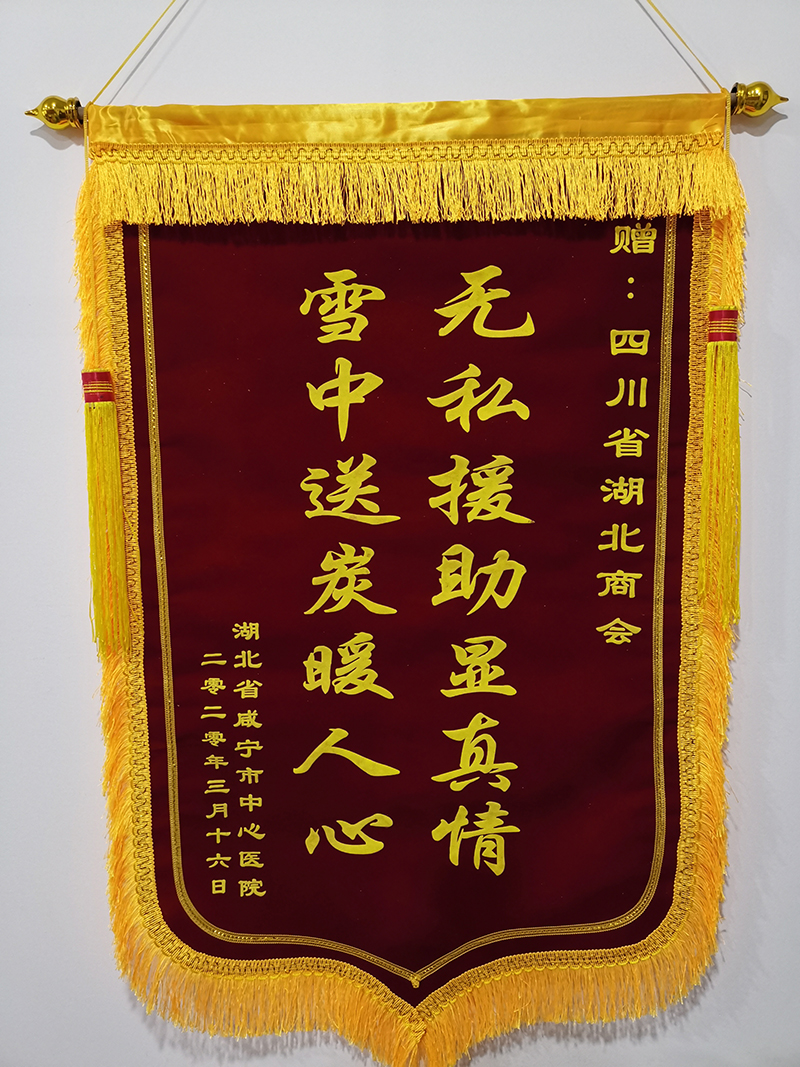 赠：四川省湖北商会
无私援助显真情
雪中送炭暖人心
湖北省咸宁市中心医院
二零二零年三月十六日